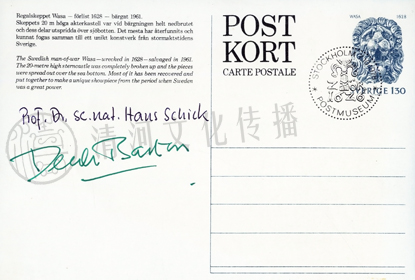 Regalskeppet Wasa – förlist 1628 – bärgat 1961.
Skeppets 20 m höga akterkastell var vid bärgningen helt nedbrutet
och dess delar utspridda över sjöbotten. Det mesta har återfunnits och
kunnat fogas samman till ett unikt konstverk från stormaktstidens
Sverige.
The Swedish man-of-war Wasa – wrecked in 1628 – salvaged in 1961.
The 20-metre high sterncastle was completely broken up and the pieces
were spread out over the sea bottom. Most of it has been recovered and
put together to make a unique showpiece from the period when Sweden
was a great power.
POST
KORT
CARTE POSTALE
WASA 1628
SVERIGE 130
STOCKHOLM
POSTMUSEUM
Prof. Dr. sc. nat. Hans Schick
Derek Barton
清河文化传播